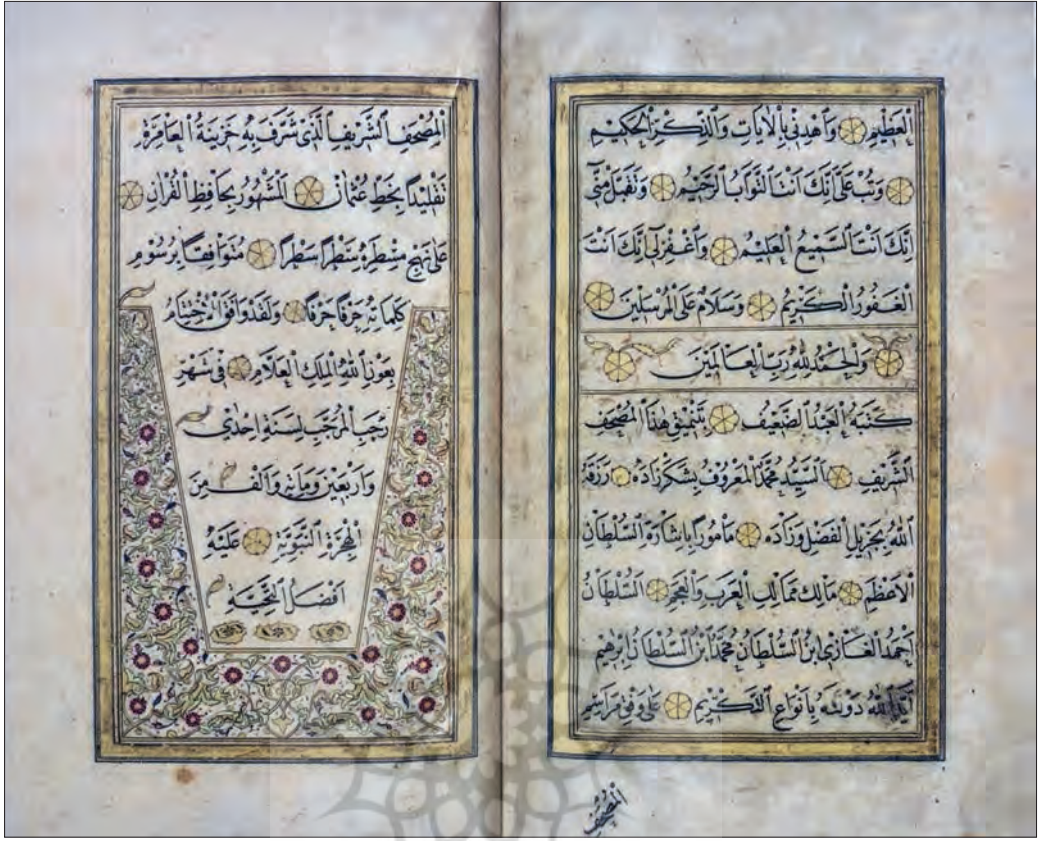 الْعَظِيْمِ وَاَهْدِنِى بِالْاٰيَاتِ وَالذِّكْرِ الْحَكِيْمِ
وَتُبْ عَلَىَّ اِنَّكَ اَنْتَ التَّوَّابُ الرَّحِيْمُ وَتَقَبَّلْ مِنِّى
اِنَّكَ اَنْتَ السَّمِيْعُ الْعَلِيْمُ وَاَغْفِرْلِى اِنَّكَ اَنْتَ
الْغَفُورُ الْكَرِيْمُ وَسَلَامٌ عَلَى الْمُرْسَلِيْنَ
وَالْحَمْدُ لِلّٰهِ رَبِّ الْعَالَمِيْنَ
كَتَبَهُ الْعَبْدُ الضَّعِيْفُ بِتَنْمِيْقِ هٰذَا الْمُصْحَفِ
الشَّرِيْفِ اَلسَّيِّدُ مُحَمَّدُ الْمَعْرُوْفُ بِشَكَرْزَادَه رَزَقَهُ
اللهُ بِجَزِيْلِ الْفَضْلِ وَزَادَه مَأْمُوْرًا بِاِشَارَةِ السُّلْطَانِ
الْاَعْظَمِ مَالِكِ مَمَالِكِ الْعَرَبِ وَالْعَجَمِ اَلسُّلْطَانْ
اَحْمَدُ الْغَازِى ابْنُ السُّلْطَانْ مُحَمَّدْ ابْنُ السُّلْطَانْ اِبْرٰهِيْم
اَيَّدَ اللهُ دَوْلَتَهُ بِاَنْوَاعِ التَّكْرِيْمِ عَلٰى وَفْقِ مَرَاسِمِ
اَلْمُصْحَفِ
الْمُصْحَفِ الشَّرِيْفِ الَّذِى شَرَّفَ بِهِ خَزِيْنَةُ الْعَامِرَةِ
تَقْلِيْدًا بِخَطِّ عُثْمَانْ اَلْمَشْهُوْرُ بِحَافِظِ الْقُرْاٰنِ
عَلٰى نَهْجِ مِسْطَرِهِ سَطْرًا سَطْرًا مُتَوَافِقًا بِرُسُوْمِ
كَلِمَاتِهِ حَرْفًا حَرْفًا وَلَقَدْ وَافَقَ اخْتِتَامُ
بِعَوْنِ اللهِ الْمَلِكِ الْعَلَّامِ فِى شَهْرِ
رَجَبِ الْمُرَجَّبِ لِسَنَةِ اِحْدٰى
وَاَرْبَعِيْنَ وَمِأَتِهِ وَاَلْفٍ مِنَ
الْهِجْرَةِ النَّبَوِيَّةِ عَلَيْهِ
اَفْضَلُ التَّحِيَّةِ